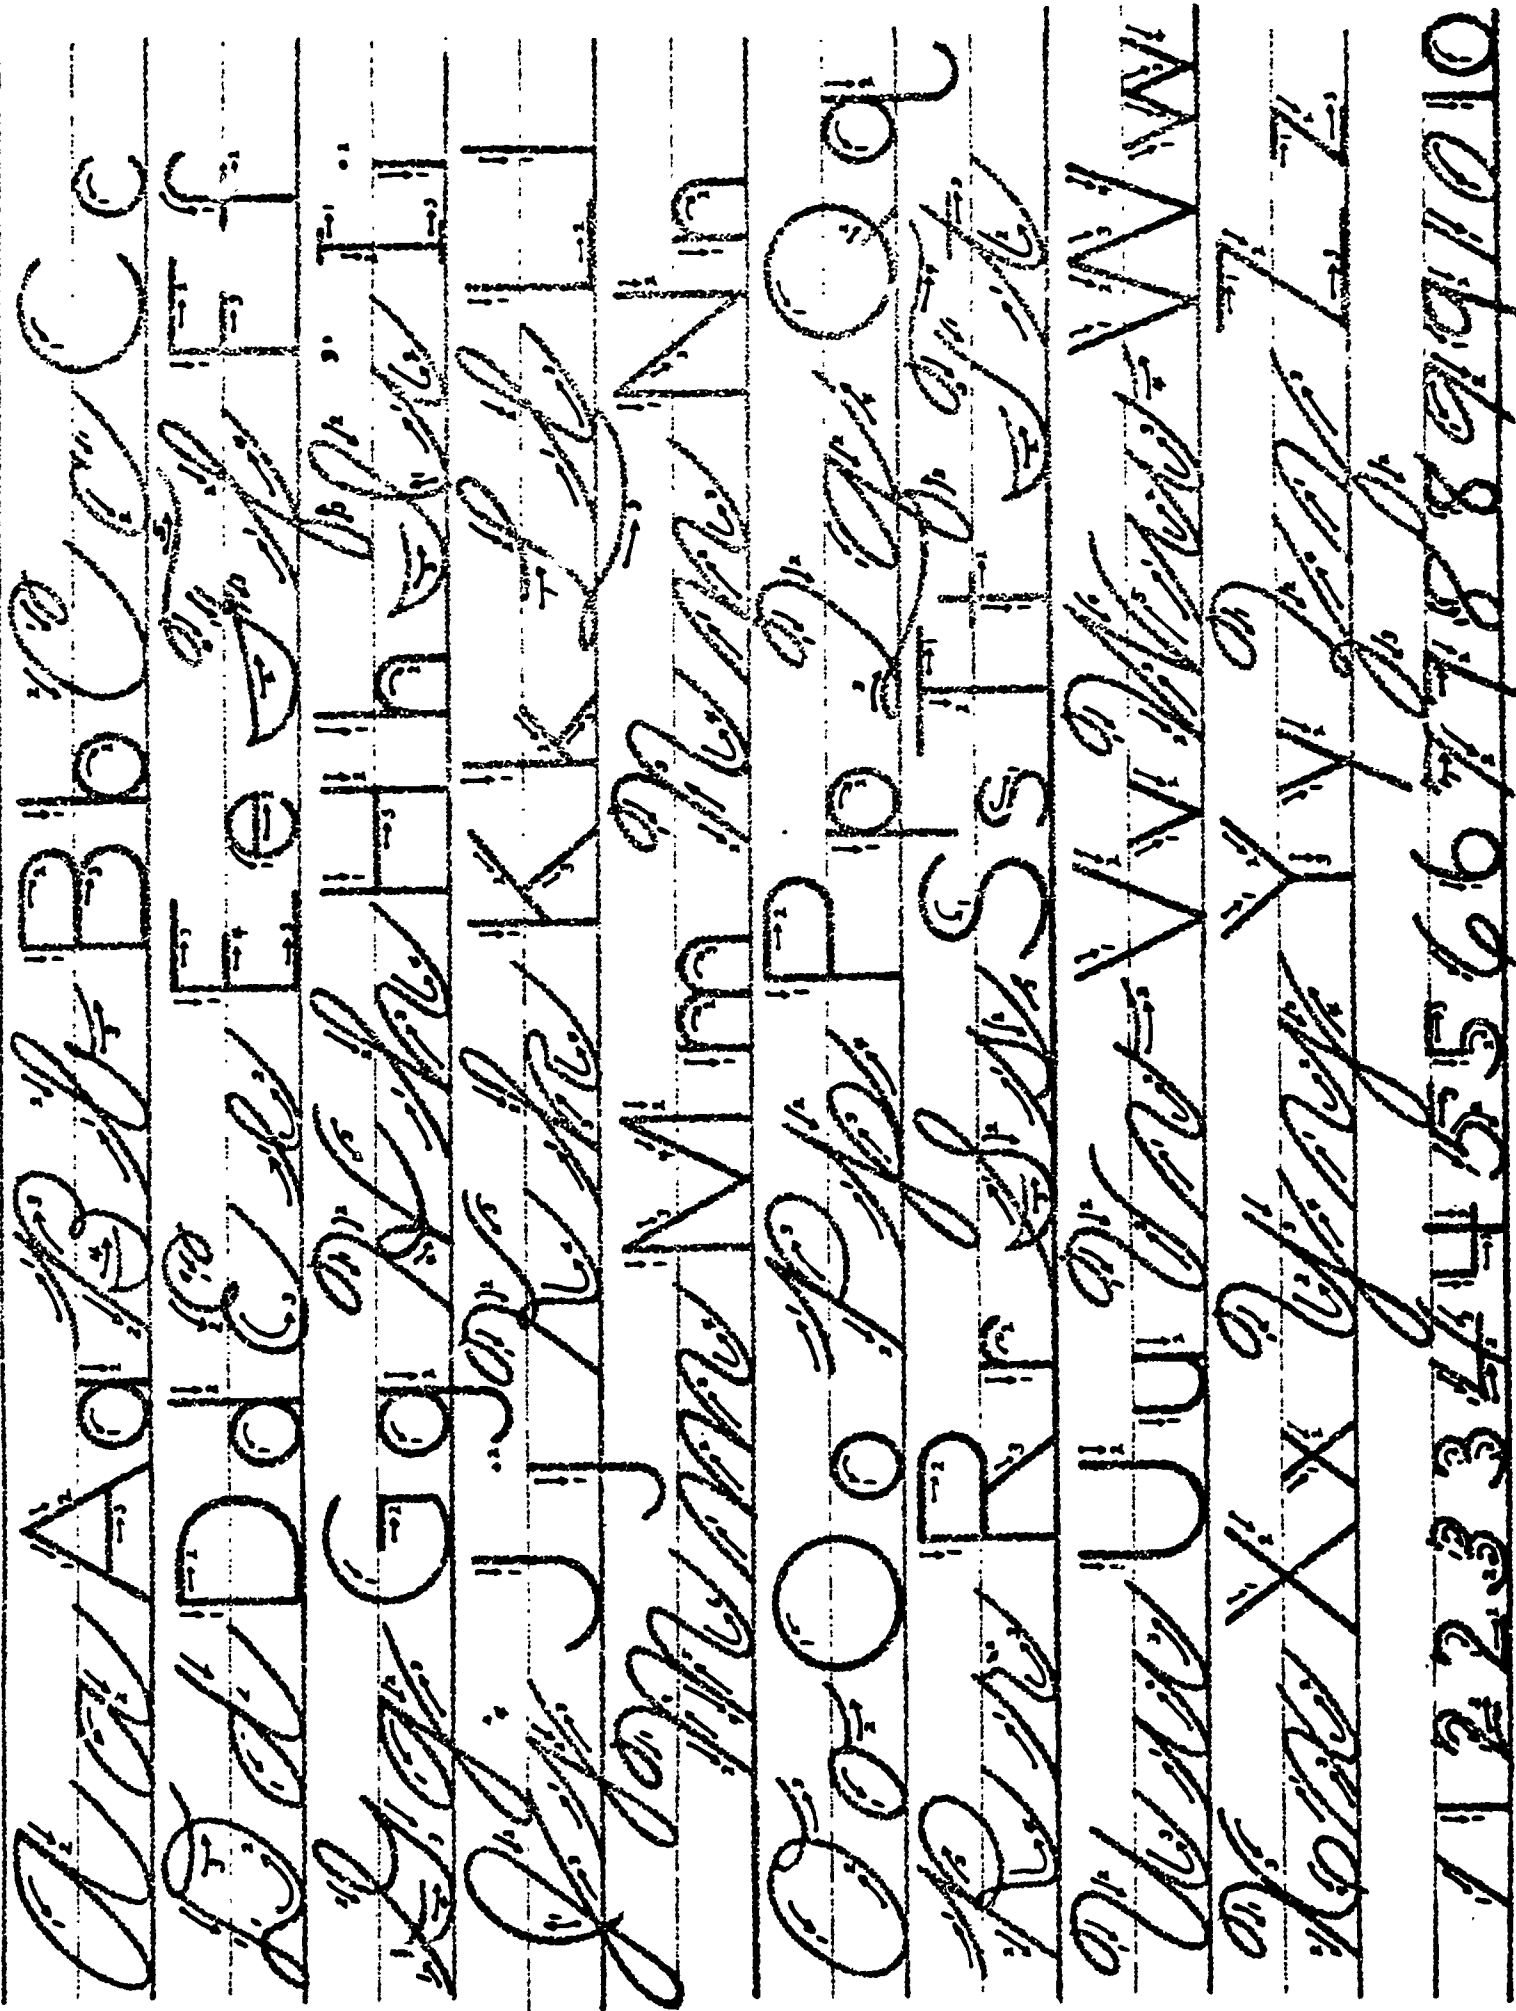 A a A a B b B b C c C c
D d D d E e E e F f F f
G g G g H h H h I i I i
J j J j K k K k L l L l
M m M m N n N n
O o O o P p P p Q q Q q
R r R r S s S s T t T t
U u U u V v V v W w W w
X x X x Y y Y y Z z Z z
1 1 2 2 3 3 4 4 5 5 6 6 7 7 8 8 9 9 10 10